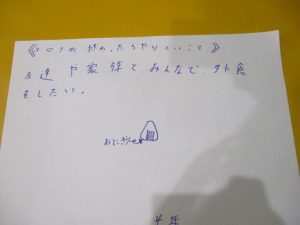 《コロナが終わったらやりたいこと》
友達や家族と、みんなで、外食
をしたい。
おにぎり
年